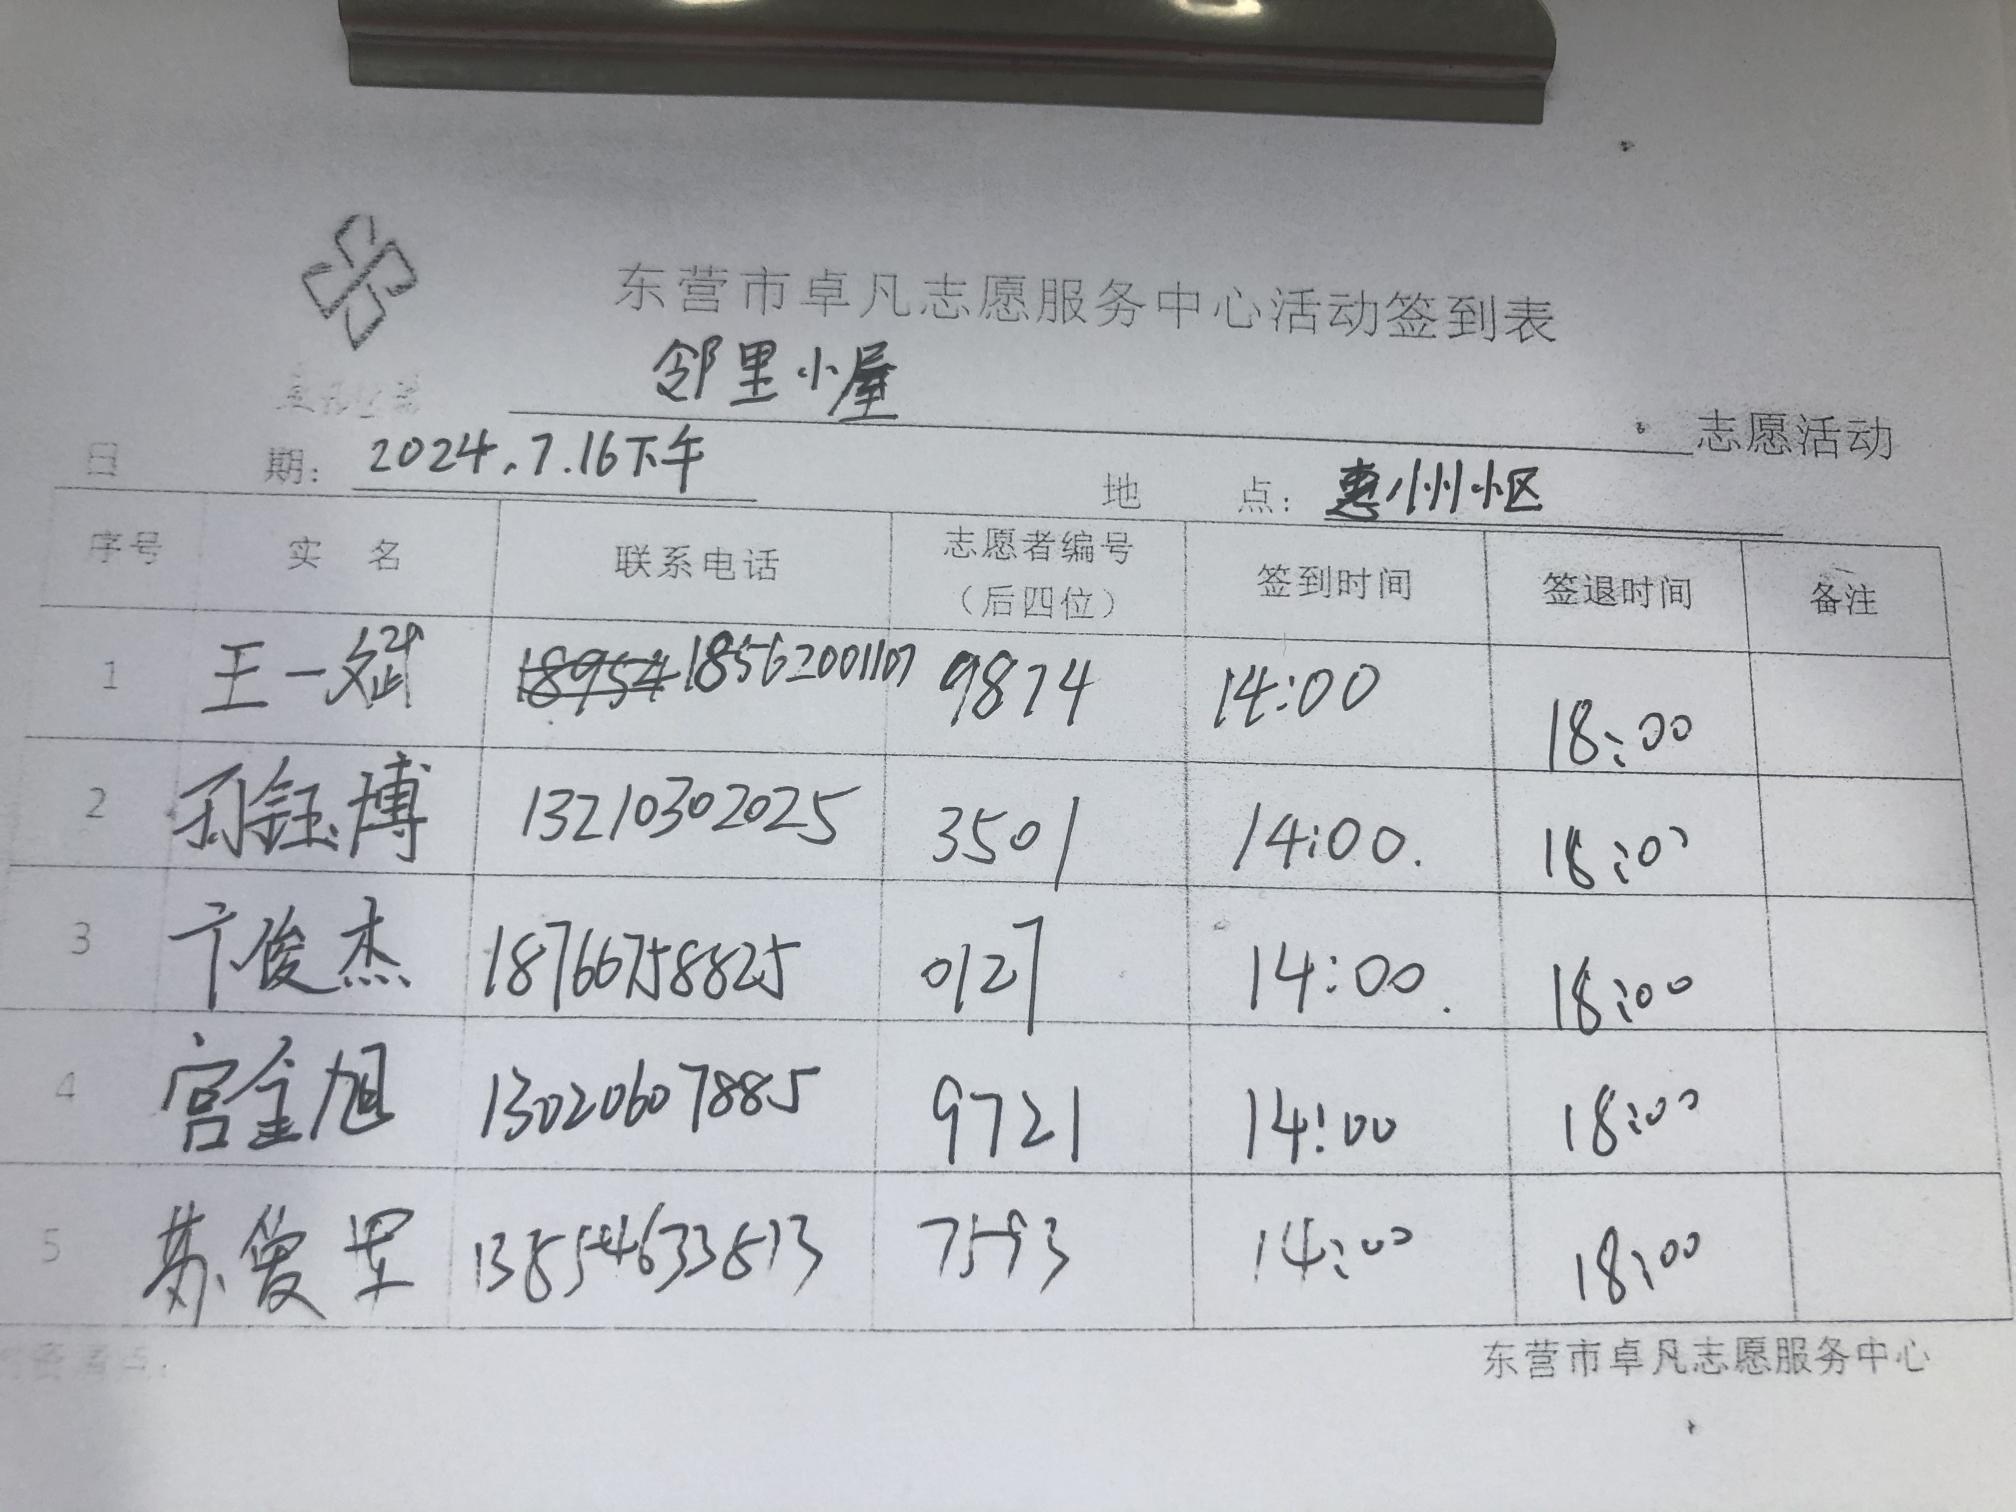 东营市卓凡志愿服务中心活动签到表
邻里小屋 志愿活动
日 期: 2024.7.16下午 地 点: 惠州小区
序号 实 名 联系电话 志愿者编号（后四位） 签到时间 签退时间 备注
1 王一斌 18954 18562001107 9874 14:00 18:00
2 孙钰博 13210302025 3501 14:00. 18:00
3 卞俊杰 18766758825 0127 14:00. 18:00
4 宫金旭 13020607885 9721 14:00 18:00
5 苏 13854633813 7593 14:00 18:00
东营市卓凡志愿服务中心